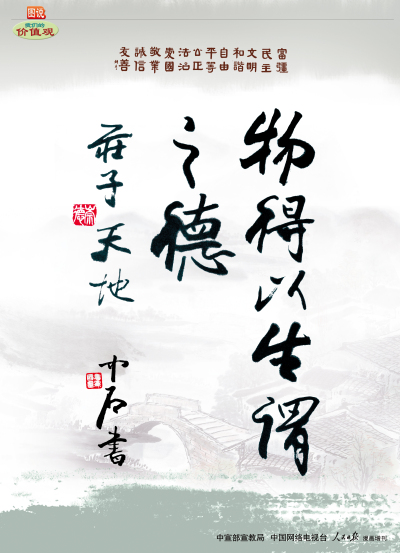 图说
我们的
价值观
富彊
民主
文明
和諧
自由
平等
公正
法治
愛國
敬業
誠信
友善
物得以生謂
之德
莊子 天地
中石書
中宣部宣教局 中国网络电视台 人民日报 漫画增刊